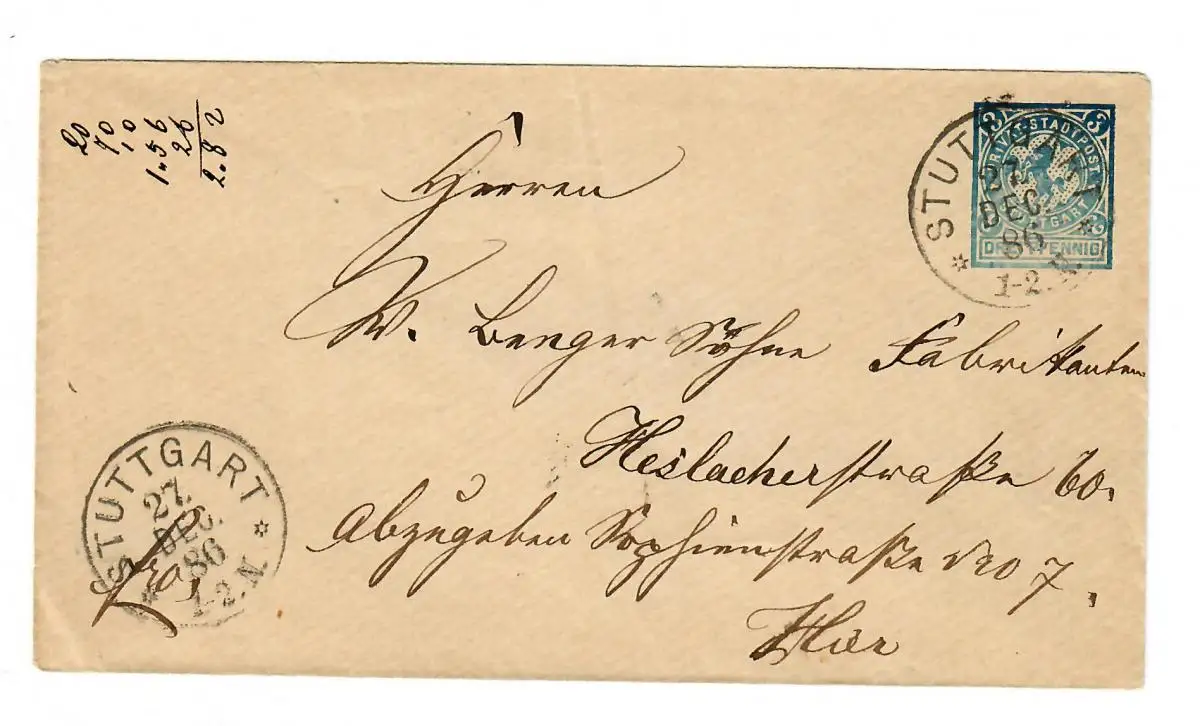 20
10
10
1.56
26
2.82
3 3
PRIVAT-STADTPOST
STUTTGART
DREI PFENNIG
STUTTGART
27.
DEC.
86
1-2.N.
Herren
W. Benger Söhne Fabrikanten
Heslacherstraße 60.
Abzugeben Sophienstraße No 7.
Hier
STUTTGART
27.
DEC.
86
1-2.N.